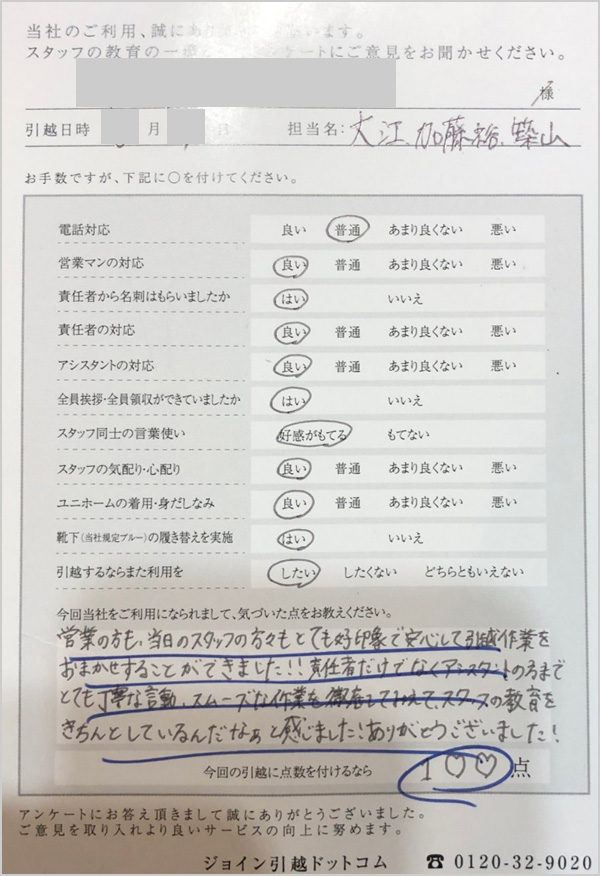 当社のご利用、誠にあ います。
スタッフの教育の一 ケートにご意見をお聞かせください。
様
引越日時 月 日 担当名: 大江、加藤裕、築山
お手数ですが、下記に○を付けてください。
電話対応 良い 普通 あまり良くない 悪い
営業マンの対応 良い 普通 あまり良くない 悪い
責任者から名刺はもらいましたか はい いいえ
責任者の対応 良い 普通 あまり良くない 悪い
アシスタントの対応 良い 普通 あまり良くない 悪い
全員挨拶・全員領収ができていましたか はい いいえ
スタッフ同士の言葉使い 好感がもてる もてない
スタッフの気配り・心配り 良い 普通 あまり良くない 悪い
ユニホームの着用・身だしなみ 良い 普通 あまり良くない 悪い
靴下(当社規定ブルー)の履き替えを実施 はい いいえ
引越するならまた利用を したい したくない どちらともいえない
今回当社をご利用になられまして、気づいた点をお教えください。
営業の方も、当日のスタッフの方々もとても好印象で安心して引越作業を
おまかせすることができました!!責任者だけでなくアシスタントの方まで
とても丁寧な言動、スムーズな作業を徹底してみえて、スタッフの教育を
きちんとしているんだなぁと感じました!ありがとうございました!
今回の引越に点数を付けるなら 1♡♡ 点
アンケートにお答え頂きまして誠にありがとうございました。
ご意見を取り入れより良いサービスの向上に努めます。
ジョイン引越ドットコム ☎ 0120-32-9020